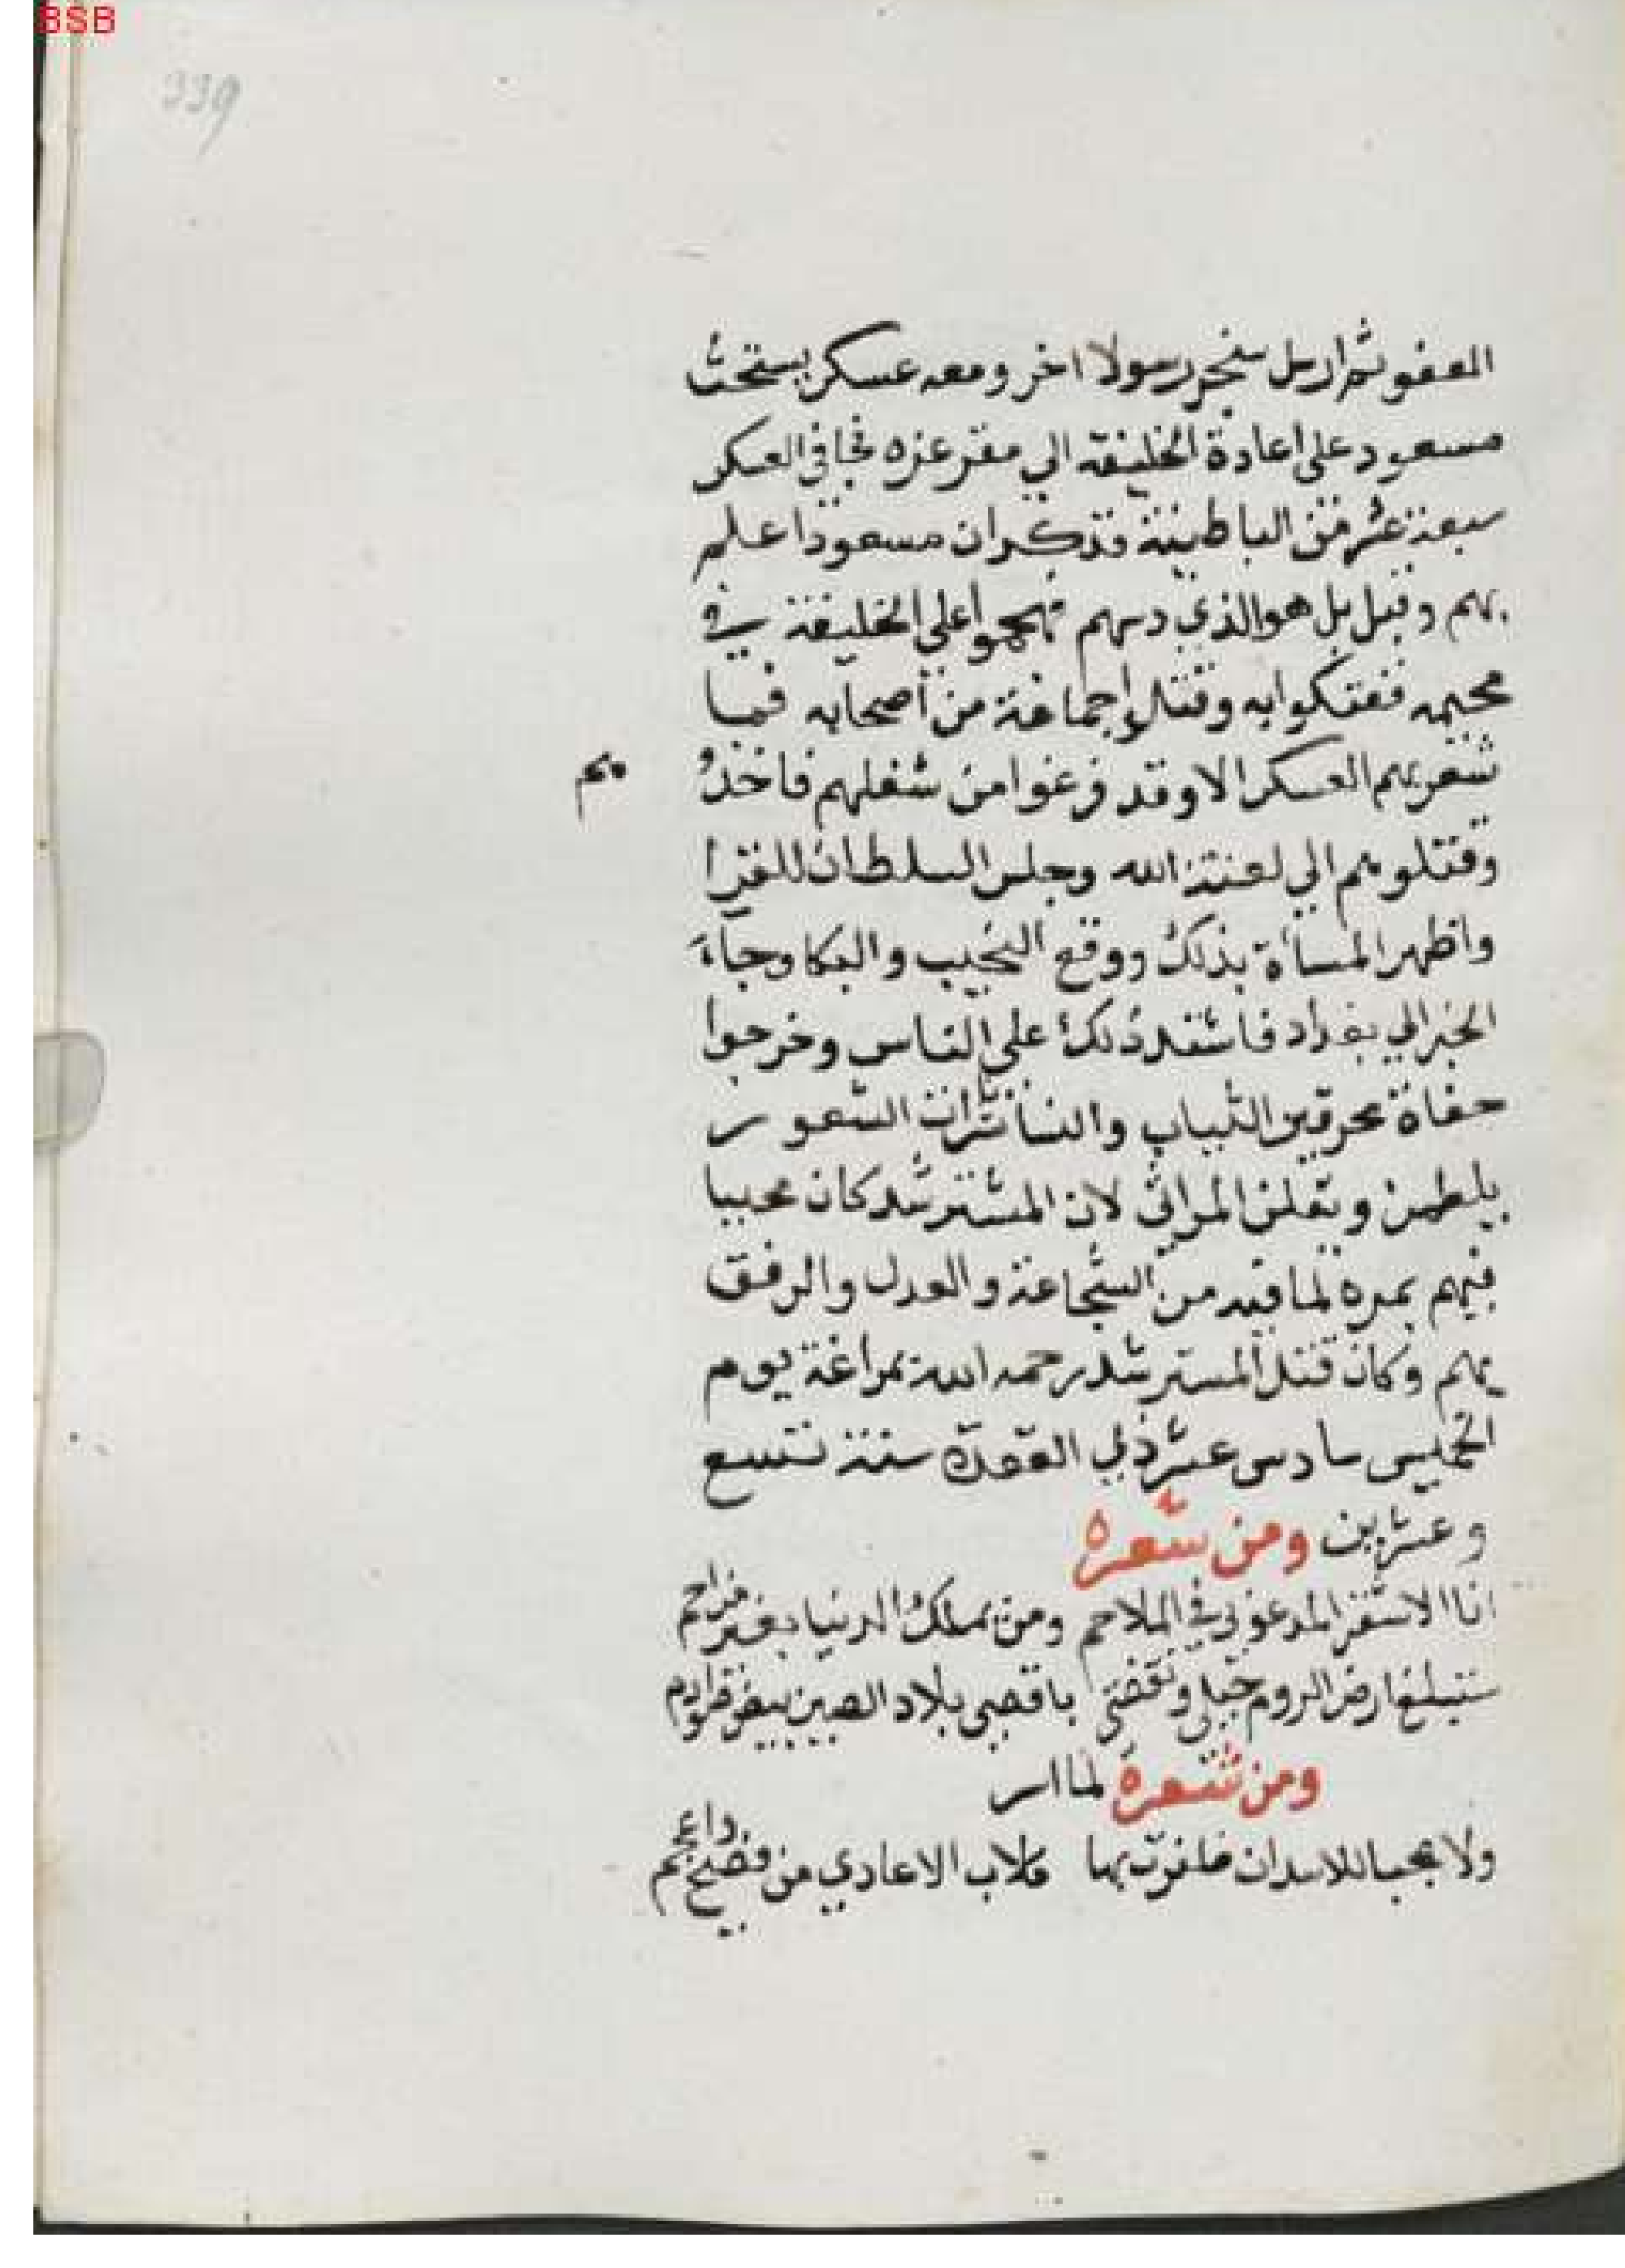 BSB
339
العفو ثم ارسل سنجر رسولا اخر ومعه عسكر يستحث
مسعود على اعادة الخليفة الي مقر عزه فجا في العسكر
سبعة عشر من الباطينة فذكر ان مسعودا علم
بهم وقيل بل هو الذي دسهم فهجموا على الخليفة في
مخيمه ففتكوا به وقتلوا جماعة من أصحابه فما
شعر بهم العسكر الا وقد فرغوا من شغلهم فاخذو هم
وقتلوهم الي لعنة الله وجلس السلطان للعزا
واظهر المسأة بذلك ووقع النحيب والبكا وجاء
الخبر الي بغداد فاشتد ذلك على الناس وخرجوا
حفاة مخرقين الثياب والنسا نثرات الشعور
يلطمن ويقلن المراثي لان المسترشد كان محببا
فيهم بمره لما فيه من الشجاعة والعدل والرفق
بهم وكان قتل المسترشد رحمه الله بمراغة يوم
الخميس سادس عشر ذي القعدة سنة تسع
وعشرين ومن شعره
انا الاشقر المدعو بي في الملاحم ومن يملك الدنيا بغير مزاحم
ستبلغ ارض الروم خيلي وتنتضى باقصى بلاد الصين بيض صوارم
ومن شعرة لما اسر
ولا عجبا للاسد ان ظفرت بها كلاب الاعادي من فصيح واعجم